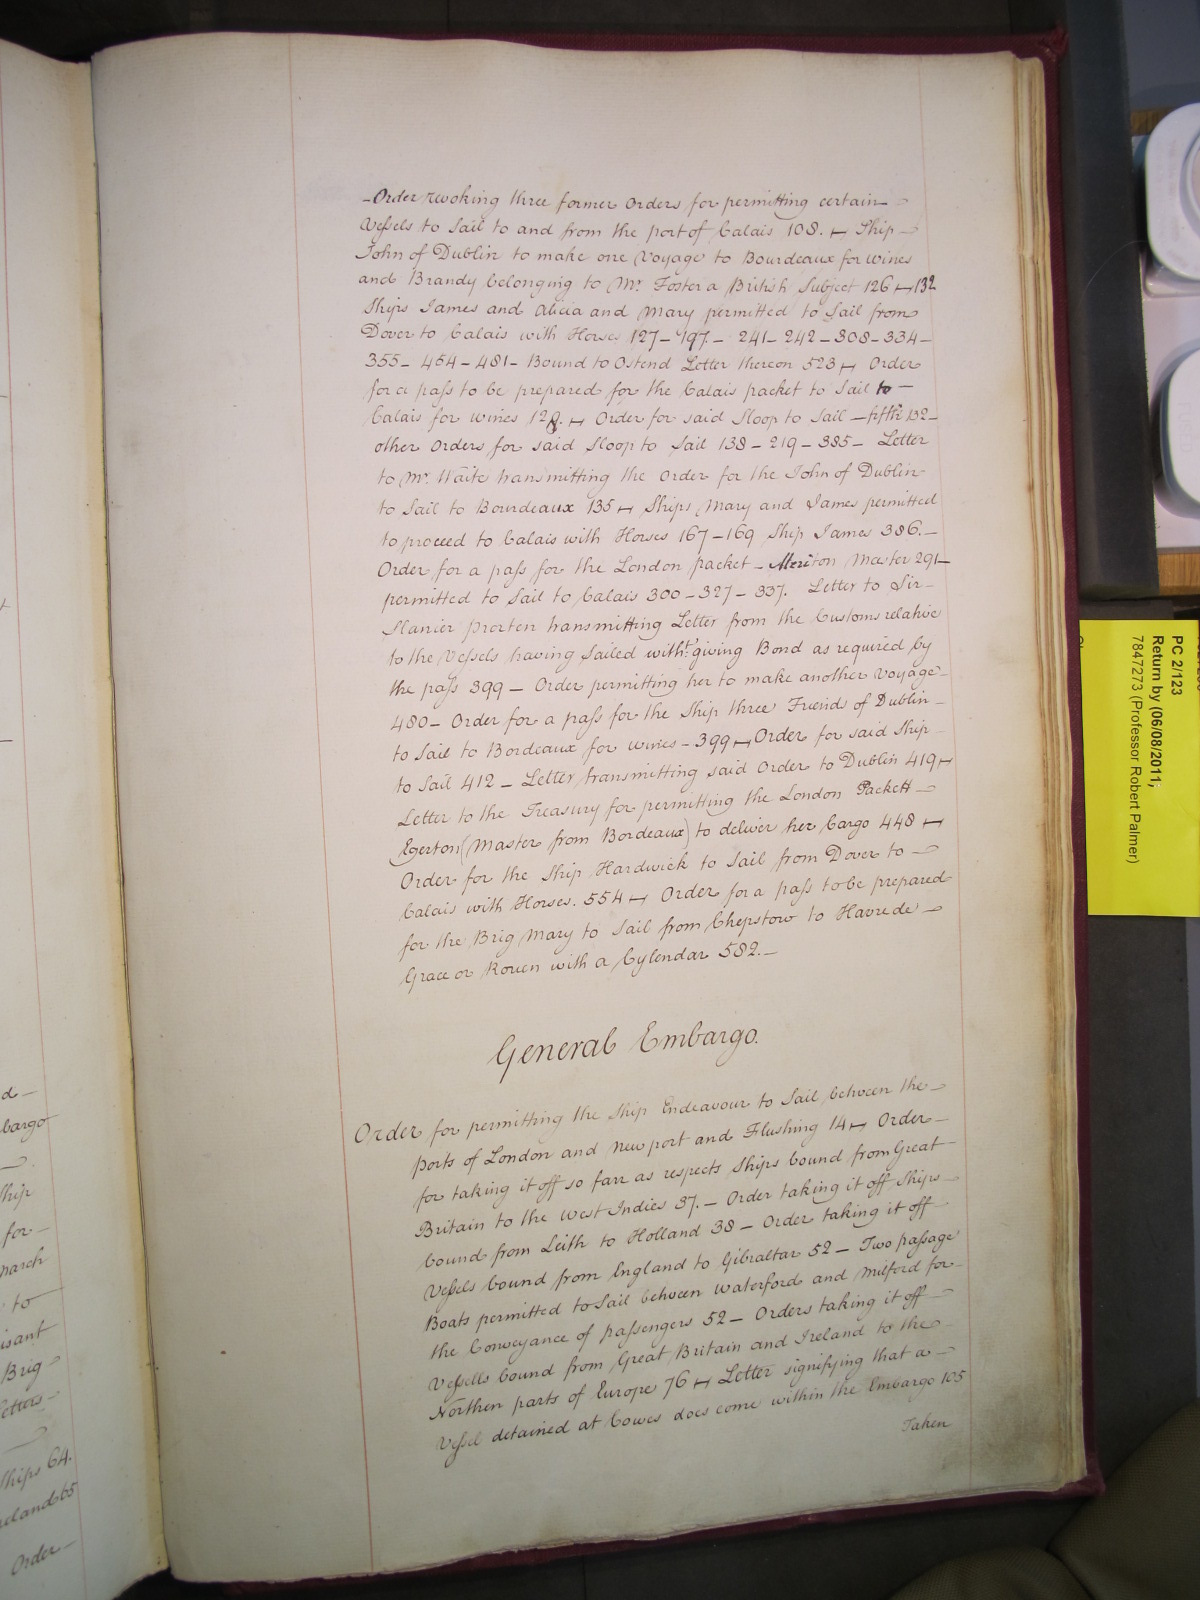 Order revoking three former Orders for permitting certain
Vessels to Sail to and from the port of Calais 108. Ship
John of Dublin to make one Voyage to Bourdeaux for wines
and Brandy belonging to Mr. Foster a British Subject 126 132
Ships James and Alicia and Mary permitted to Sail from
Dover to Calais with Horses 127 – 197 – 241 – 242 – 308 – 334 –
355 – 464 – 481 – Bound to Ostend Letter thereon 523 Order
for a pass to be prepared for the Calais packet to Sail to –
Calais for wines 128. Order for said Sloop to Sail – fifth 132 –
other Orders for said Sloop to Sail 138 – 219 – 385 – Letter
to Mr. Waite transmitting the Order for the John of Dublin
to Sail to Bourdeaux 135 Ships Mary and James permitted
to proceed to Calais with Horses 167 – 169 Ship James 386. –
Order for a pass for the London packet – Meriton Master 291 –
permitted to Sail to Calais 300 – 327 – 337. Letter to Sir –
Stanier Porten transmitting Letter from the Customs relative
to the Vessels having Sailed witht. giving Bond as required by
the pass 399 – Order permitting her to make another Voyage –
480 – Order for a pass for the Ship three Friends of Dublin –
to Sail to Bordeaux for wines – 399 Order for said Ship –
to Sail 412 – Letter transmitting said Order to Dublin 419
Letter to the Treasury for permitting the London Packett –
Egerton (Master from Bordeaux) to deliver her Cargo 448
Order for the Ship Hardwick to Sail from Dover to –
Calais with Horses. 554 Order for a pass to be prepared
for the Brig Mary to Sail from Chepstow to Havre de –
Grace or Rouen with a Cylendar 582. –
General Embargo.
Order for permitting the Ship Endeavour to Sail between the –
ports of London and Newport and Flushing 14 Order –
for taking it off so farr as respects Ships bound from Great
Britain to the West Indies 37. – Order taking it off Ships –
bound from Leith to Holland 38 – Order taking it off
Vessels bound from England to Gibraltar 52 – Two passage
Boats permitted to Sail between Waterford and Milford for
the Conveyance of passengers 52 – Orders taking it off –
Vessells bound from Great Britain and Ireland to the –
Northen parts of Europe 76 Letter signifying that a –
Vessel detained at Cowes does come within the Embargo 105
Taken
d –
bargo
Ship
for –
March
to
isant
Brig
etters
Ships 64.
reland 65
Order –
PC 2/123
Return by (06/08/2011;
7847273 (Professor Robert Palmer)